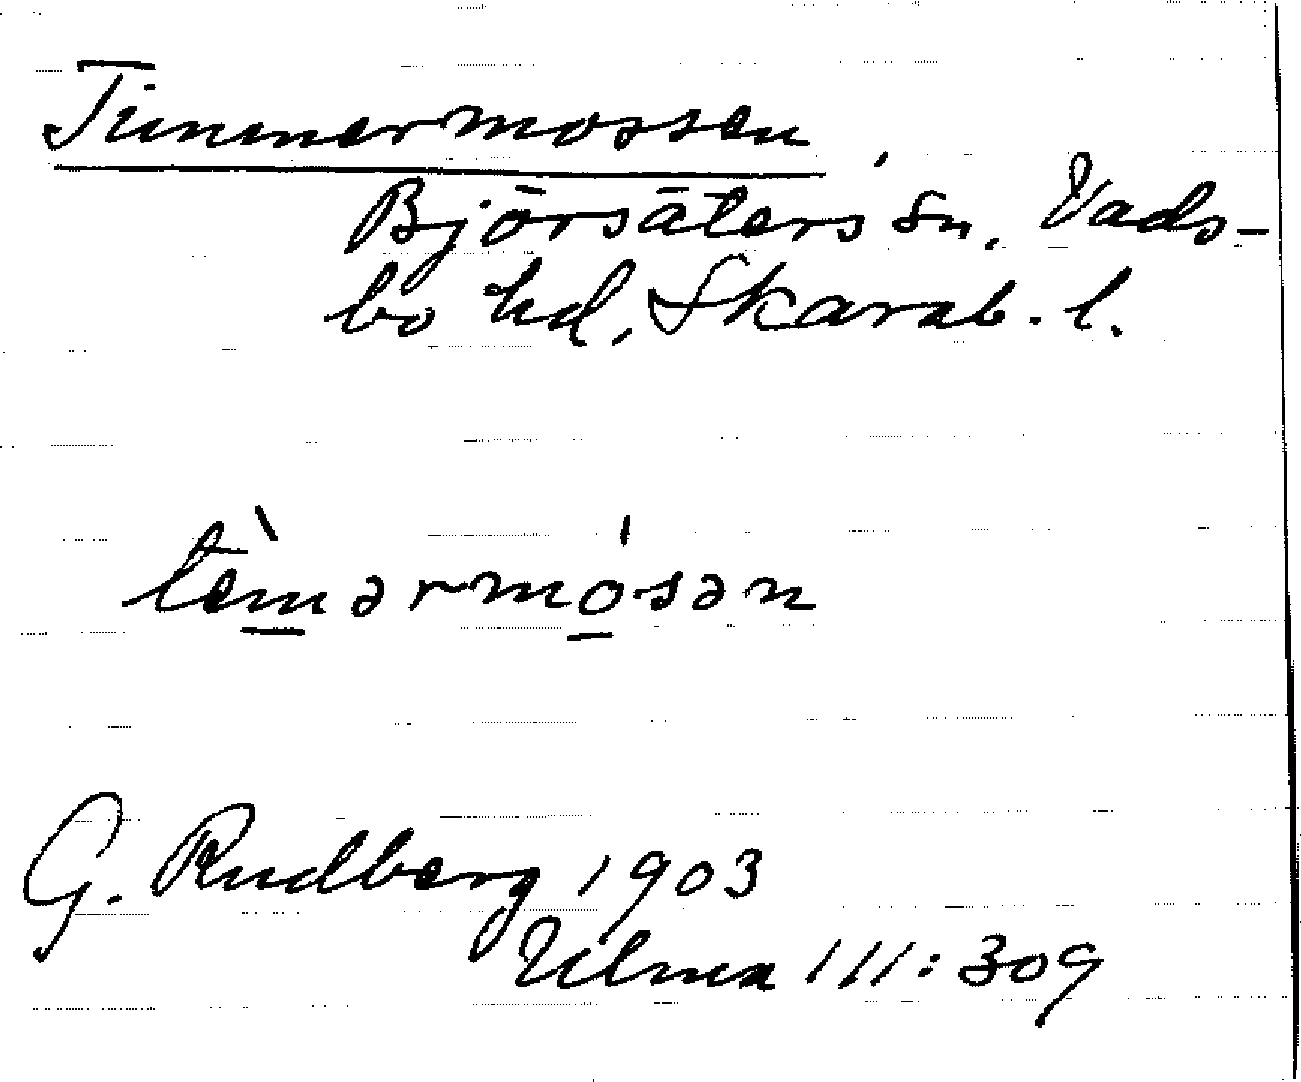 Timmermossen,
Björsäters sn, Vads-
bo hd, Skarab. l.
tèmərmósən
G. Rudberg 1903
Ulma 111:309